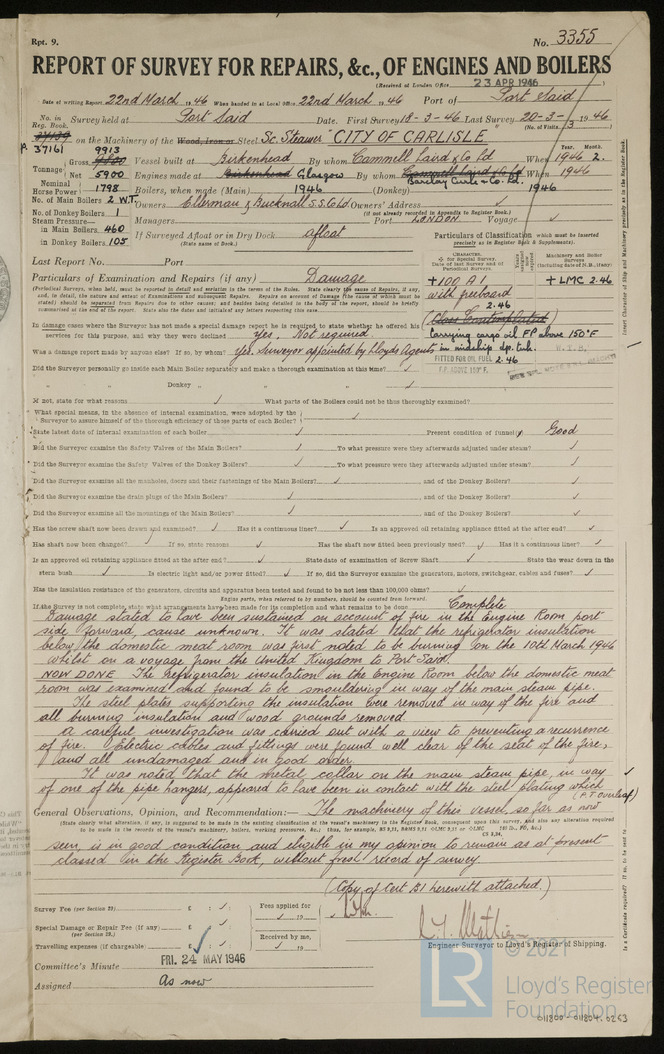 Rpt. 9.
No. 3355
REPORT OF SURVEY FOR REPAIRS, &c., OF ENGINES AND BOILERS
(Received at London Office 23 APR 1946)
Date of writing Report 22nd March 1946 When handed in at Local Office 22nd March 1946 Port of Port Said
No. in Reg. Book. Survey held at Port Said Date. First Survey 18-3-46 Last Survey 20-3-1946
(No. of Visits 3)
37139 on the Machinery of the Wood, Iron or Steel Sc. Steamer "CITY OF CARLISLE"
37161
Tonnage Gross 9913 Vessel built at Birkenhead By whom Cammell Laird & Co Ld When 1946 2.
Year. Month.
Net 5900 Engines made at Birkenhead Glasgow By whom Cammell Laird & Co Ld Barclay Curle & Co. Ld. When 1946
Nominal Horse Power 1798 Boilers, when made (Main) 1946 (Donkey) 1946
No. of Main Boilers 2 W.T. Owners Ellerman & Bucknall S.S. Co Ld Owners' Address
(if not already recorded in Appendix to Register Book.)
No. of Donkey Boilers 1 Managers Port LONDON Voyage
Steam Pressure in Main Boilers 460 If Surveyed Afloat or in Dry Dock afloat
(State name of Dock.)
in Donkey Boilers 105
Particulars of Classification which must be inserted precisely as in Register Book & Supplements).
Last Report No. Port
Particulars of Examination and Repairs (if any) Damage
+100 A1 +LMC 2.46
with freeboard
2.46
(Class Contemplated)
Carrying cargo oil FP above 150°F
in midship dp. tnk.
FITTED FOR OIL FUEL 2.46
F.P. ABOVE 150° F.
In damage cases where the Surveyor has not made a special damage report he is required to state whether he offered his services for this purpose, and why they were declined Yes. Not required.
Was a damage report made by anyone else? If so, by whom? Yes. Surveyor appointed by Lloyds Agents
Did the Surveyor personally go inside each Main Boiler separately and make a thorough examination at this time?
" " Donkey "
If not, state for what reasons What parts of the Boilers could not be thus thoroughly examined?
What special means, in the absence of internal examination, were adopted by the Surveyor to assure himself of the thorough efficiency of those parts of each Boiler?
State latest date of internal examination of each boiler Present condition of funnel Good
Did the Surveyor examine the Safety Valves of the Main Boilers? To what pressure were they afterwards adjusted under steam?
Did the Surveyor examine the Safety Valves of the Donkey Boilers? To what pressure were they afterwards adjusted under steam?
Did the Surveyor examine all the manholes, doors and their fastenings of the Main Boilers? and of the Donkey Boilers?
Did the Surveyor examine the drain plugs of the Main Boilers? and of the Donkey Boilers?
Did the Surveyor examine all the mountings of the Main Boilers? and of the Donkey Boilers?
Has the screw shaft now been drawn and examined? Has it a continuous liner? Is an approved oil retaining appliance fitted at the after end?
Has shaft now been changed? If so, state reasons Has the shaft now fitted been previously used? Has it a continuous liner?
Is an approved oil retaining appliance fitted at the after end? State date of examination of Screw Shaft State the wear down in the
stern bush Is electric light and/or power fitted? If so, did the Surveyor examine the generators, motors, switchgear, cables and fuses?
Has the insulation resistance of the generators, circuits and apparatus been tested and found to be not less than 100,000 ohms?
Engine parts, when referred to by numbers, should be counted from forward.
If the Survey is not complete, state what arrangements have been made for its completion and what remains to be done Complete
Damage stated to have been sustained on account of fire in the Engine Room port
side forward, cause unknown. It was stated that the refrigerator insulation
below the domestic meat room was first noted to be burning on the 10th March 1946
whilst on a voyage from the United Kingdom to Port Said.
NOW DONE The Refrigerator insulation in the Engine Room below the domestic meat
room was examined and found to be smouldering in way of the main steam pipe.
The steel plates supporting the insulation were removed in way of the fire and
all burning insulation and wood grounds removed.
A careful investigation was carried out with a view to preventing a recurrence
of fire. Electric cables and fittings were found well clear of the seat of the fire,
and all undamaged and in good order.
It was noted that the metal collar on the main steam pipe, in way
of one of the pipe hangers, appeared to have been in contact with the steel plating which
(P.T. overleaf)
General Observations, Opinion, and Recommendation:— The machinery of this vessel so far as now
(State clearly what alteration, if any, is suggested to be made in the existing classification of the vessel's machinery in the Register Book, consequent upon this survey, and also any alteration required to be made in the records of the vessel's machinery, boilers, working pressures, &c.;
seen, is in good condition and eligible in my opinion to remain as at present
classed in the Register Book, without fresh record of survey.
(Copy of Cert B1 herewith attached.)
Survey Fee (per Section 29) £ : :
Fees applied for 19
Special Damage or Repair Fee (if any) £ : :
(per Section 29.)
Received by me, 19
Travelling expenses (if chargeable) £ : :
Engineer Surveyor to Lloyd's Register of Shipping.
Committee's Minute FRI. 24 MAY 1946
Assigned As now
© 2021
LR
Lloyd's Register
Foundation
011800-011804-0253